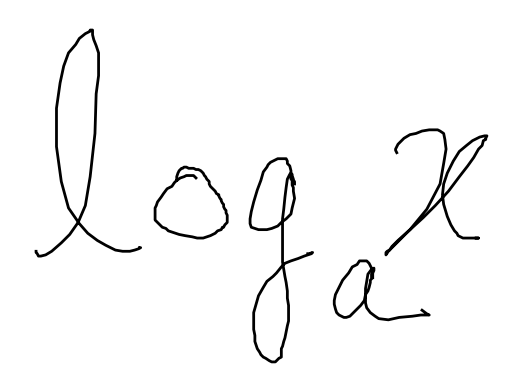 logₐ x